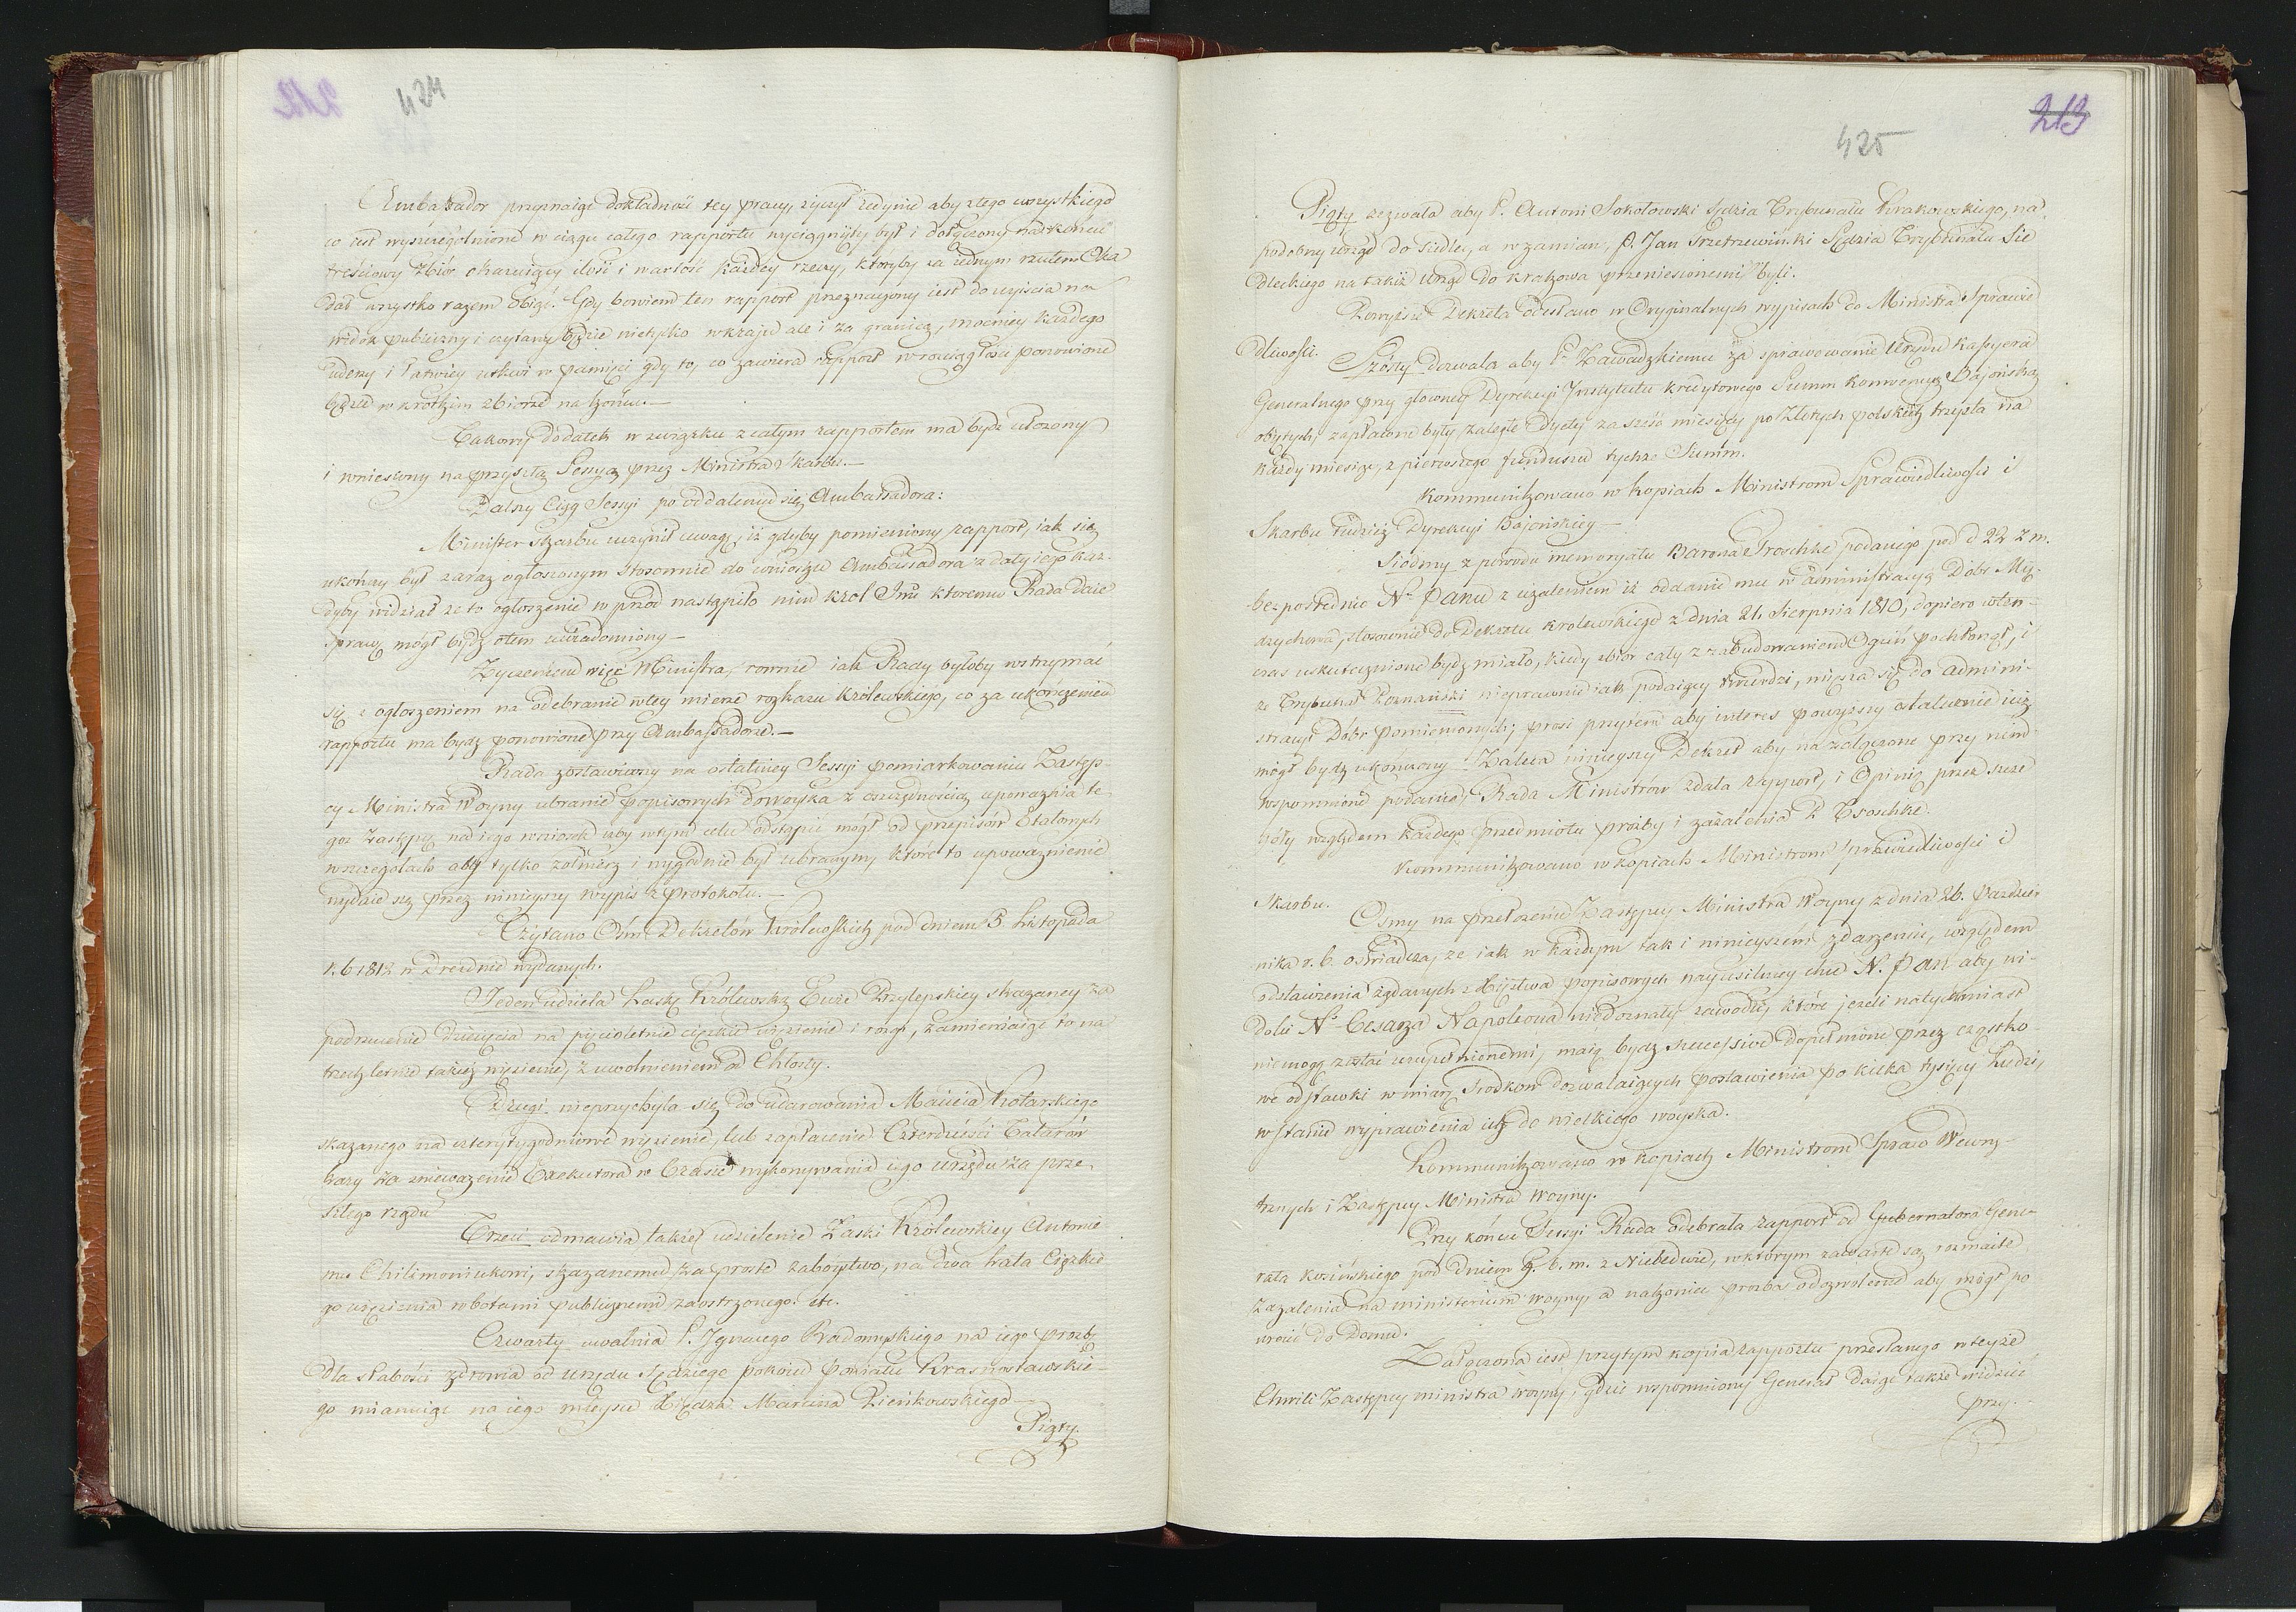 424
Ambassador przyznaiąc dokładność tey pracy, życzył iedynie aby z tego wszystkiego
co iest wyszczególnione w ciągu całego rapportu wyciągnięty był i dołączony na końcu
treściowy zbiór okazuiący ilość i wartość każdey rzeczy, któryby za iednym rzutem Oka
dał wszystko razem obiąć. Gdy bowiem ten rapport przeznaczony iest do wyiścia na
widok publiczny i czytany będzie nietylko w kraju ale i za granicą, mocniey każdego
uderzy i łatwiey utkwi w pamięci gdy to, co zawiera rapport w rozciągłości ponowione
będzie w krótkim zbiorze na końcu.—
Takowy dodatek w związku z całym rapportem ma bydź ułożony
i wniesiony na przyszłą Sessyą przez Ministra Skarbu.—
Dalszy Ciąg Sessyi po oddaleniu się Ambassadora:
Minister Skarbu uczynił uwagę, iż gdyby pomieniony rapport, iak się
ukończy był zaraz ogłoszonym stosownie do wniosku Ambassadora a daty iego każ-
dyby widział że to ogłoszenie w przód nastąpiło nim Król Jmć któremu Rada daie
sprawę mógł bydź o tem uwiadomiony—
Życzeniem więc Ministra, równie iak Rady byłoby wstrzymać
się z ogłoszeniem na odebranie w tey mierze rozkazu Królewskiego, co za ukończeniem
rapportu ma bydź ponowione przy Ambassadorze.—
Rada zostawiwszy na ostatniey Sessyi pomiarkowaniu Zastęp-
cy Ministra Woyny ubranie popisowych do woyska z oszczędnością upoważnia te-
goż Zastępcę na iego wniosek aby w tym celu odstąpić mógł od przepisów Etatowych
w szczegółach aby tylko żołnierz i wygodnie był ubranym, które to upoważnienie
wydaie się przez ninieyszy wypis z protokołu.—
Czytano Ośm Dekretów Królewskich pod dniem 3 Listopada
r. b 1812 w Dreźnie wydanych.
Jeden udziela Łaskę Królewską Ewie Przylepskiey skazaney za
podrzucenie dziecięcia na pięcioletnie ciężkie więzienie i rózgi, zamieniaiąc to na
trzechletnie takież więzienie, z uwolnieniem od Chłosty.
Drugi nieprzychyla się do udarowania Macieia Kotarskiego
skazanego na czterytygodniowe więzienie, lub zapłacenie Czterdzieści Talarów
kary za znieważenie Exekutora w Czasie wykonywania iego urzędu za prze-
szłego rządu
Trzeci odmawia także udzielenie Łaski Królewskiey Antonie-
mu Chilimoniukowi, skazanemu za proste zabóystwo, na dwa lata Ciężkie-
go więzienia robotami publicznemi zaostrzonego. etc.
Czwarty uwalnia P. Ignacego Radomyskiego na iego prośbę
dla słabości zdrowia od urzędu Sędziego pokoiu Powiatu Krasnostawskie-
go mianuiąc na iego mieysce Xiędza Marcina Pieńkowskiego
Piąty.
213
425
Piąty zezwala aby P. Antoni Sokołowski Sędzia Trybunału Krakowskiego, na
podobny urząd do Siedlec, a w zamian, P. Jan Trzetrzewiński Sędzia Trybunału Sie-
dleckiego na takiż Urząd do Krakowa przeniesionemi byli.
Powyższe Dekreta odesłano w Oryginalnych wypisach do Ministra Sprawie-
dliwości.
Szósty dozwala aby P. Zawadzkiemu za sprawowanie Urzędu Kassyera
Generalnego przy głównej Dyrekcyi Instytutu kredytowego Summ Konwencyą Bajońską
objętych, zapłacone były zaległe dyety za sześć miesięcy po złotych polskich trzysta na
każdy miesiąc, z pierwszego funduszu tychże Summ.
Kommunikowano w kopiach Ministrom Sprawiedliwości i
Skarbu tudzież Dyrekcyi Bajońskiey—
Siódmy z powodu memoryału Barona Troschke podanego pod d 22 z m.
bezpośrednio N. Panu z użaleniem iż oddanie mu w administracyą Dóbr Mię-
dzychowa, stosownie do Dekretu królewskiego z dnia 21. Sierpnia 1810, dopiero wten-
czas uskutecznione bydź miało, kiedy zbiór cały z zabudowaniem Ogień pochłonął, i
że Trybunał Poznański nieprawnie iak podaiący twierdzi, miesza się do admini-
stracyi Dóbr pomienionych; prosi przytem aby interes powyższy ostatecznie iuż
mógł bydź ukończony. Zaleca ninieyszy Dekret aby na załączone przy nim
wspomnione podanie, Rada Ministrów zdała rapport, i Opinią przez szcze-
góły względem każdego przedmiotu prośby i zażalenia P. Troschke.
Kommunikowano w kopiach Ministrom sprawiedliwości i
Skarbu.
Ósmy na przełożenie Zastępcy Ministra Woyny z dnia 26. Paździer-
nika r. b. oświadcza, że iak w każdym tak i ninieyszém zdarzeniu, względem
odstawienia żądanych z Xięstwa popisowych nayusilniey chce N. Pan aby wi-
doki N. Cesarza Napoleona niedoznały zawodu, które jeżeli natychmiast
niemogą zostać uzupełnionemi, maią bydź successive dopełnione przez cząstko-
we odstawki w miarę środków dozwalaiących postawienia po kilka tysięcy Ludzi,
w stanie wyprawienia ich do wielkiego woyska.
Kommunikowano w kopiach Ministrom Spraw Wewnę-
trznych i Zastępcy Ministra Woyny.
Przy końcu Sessyi Rada odebrała rapport od Gubernatora Gene-
rała Kosińskiego pod dniem 9. b. m. z Niebedwie, w którym zawarte są rozmaite
zażalenia na ministerium woyny, a na końcu prośba o dozwolenie aby mógł po-
wrócić do Domu.
Załączona iest przytym kopia rapportu przesłanego w teyże
Chwili Zastępcy ministra woyny, gdzie wspomniony Generał daiąc także widzieć
przy-